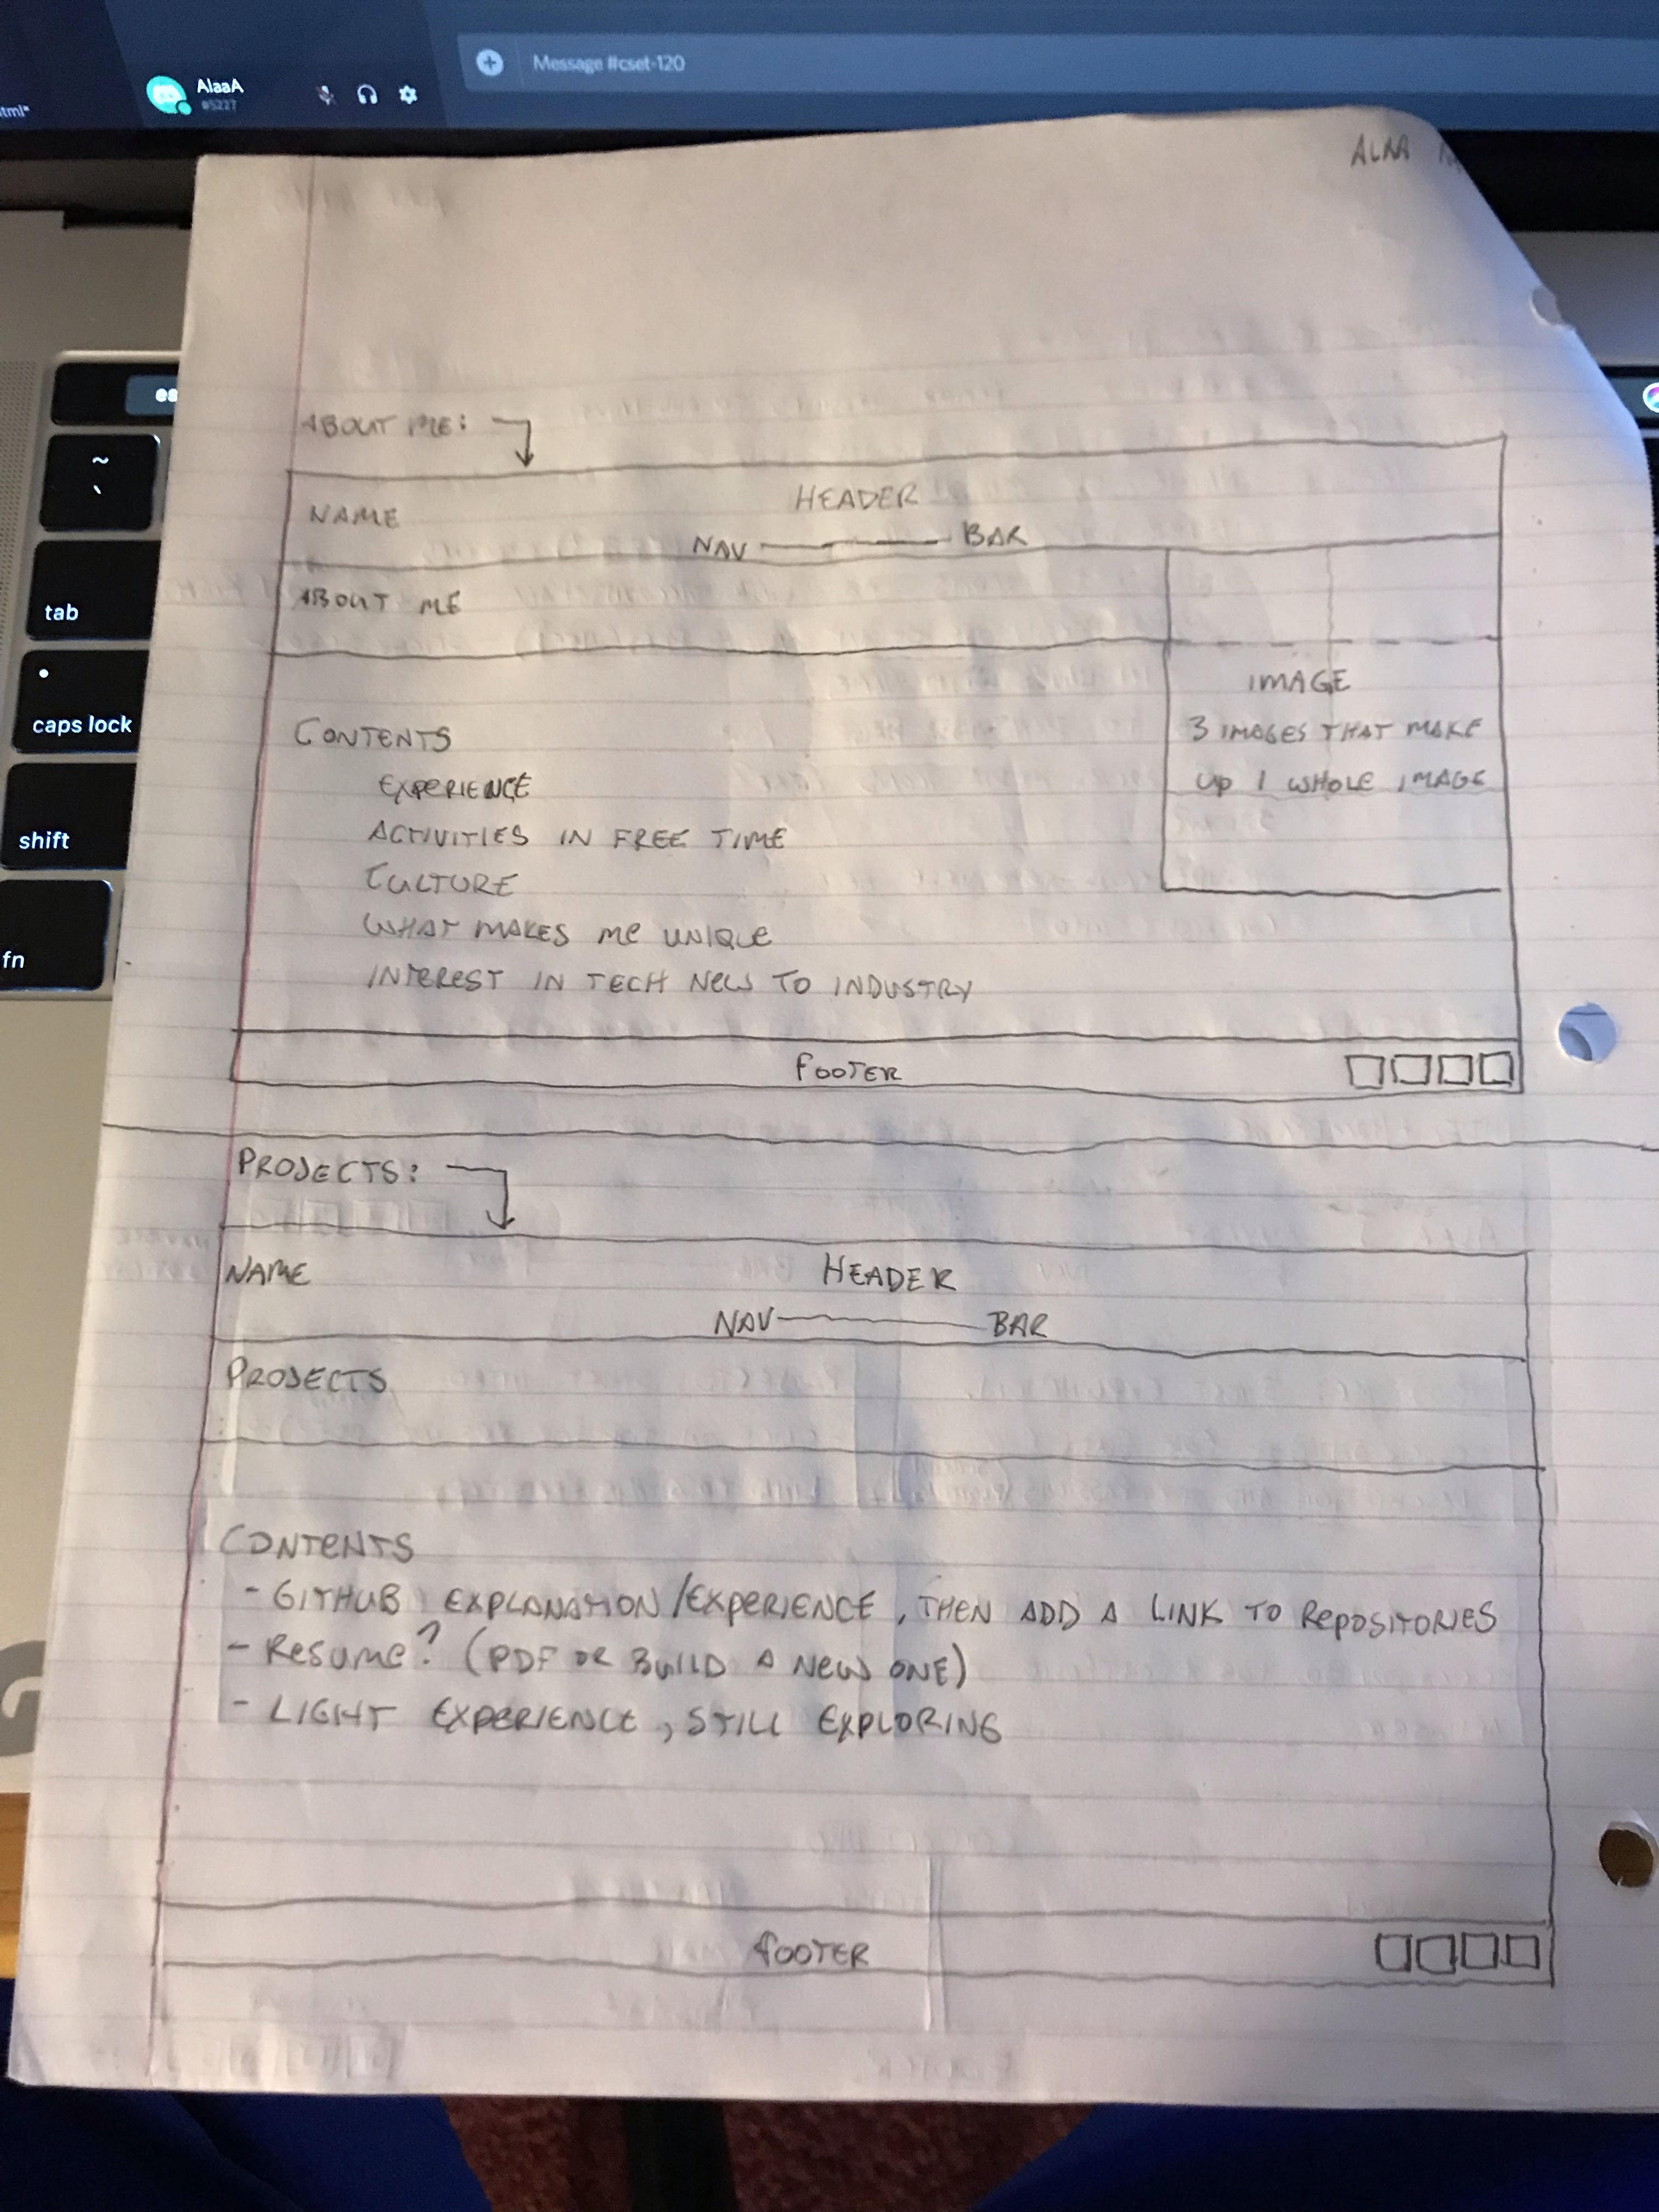 Message #cset-120
AlaaA
#5227
tml*
ALAA
es
~
`
tab
caps lock
shift
fn
ABOUT ME:
HEADER
NAME
NAV BAR
ABOUT ME
IMAGE
3 IMAGES THAT MAKE
UP 1 WHOLE IMAGE
CONTENTS
EXPERIENCE
ACTIVITIES IN FREE TIME
CULTURE
WHAT MAKES ME UNIQUE
INTEREST IN TECH NEW TO INDUSTRY
FOOTER
PROJECTS:
NAME HEADER
NAV BAR
PROJECTS
CONTENTS
- GITHUB EXPLANATION/EXPERIENCE, THEN ADD A LINK TO REPOSITORIES
- RESUME? (PDF OR BUILD A NEW ONE)
- LIGHT EXPERIENCE, STILL EXPLORING
FOOTER